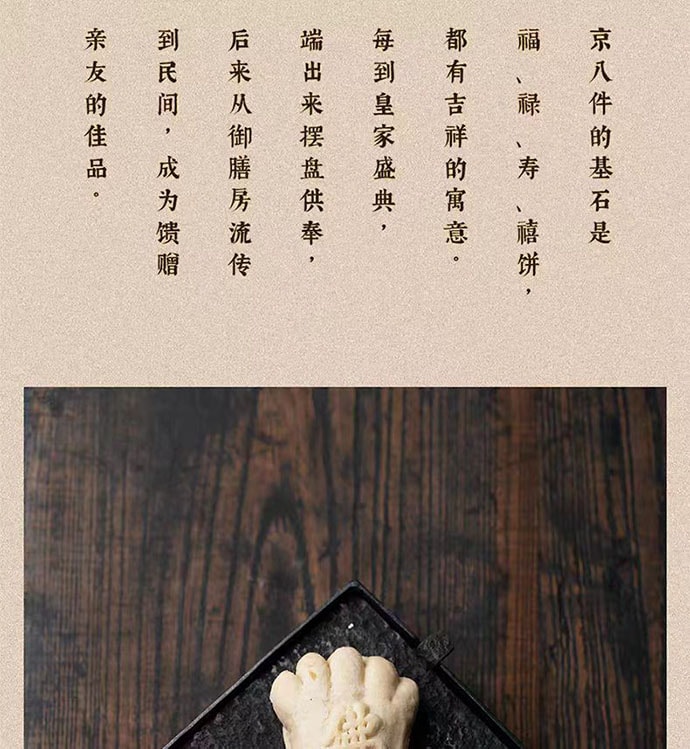 京八件的基石是
福、禄、寿、禧饼，
都有吉祥的寓意。
每到皇家盛典，
端出来摆盘供奉，
后来从御膳房流传
到民间，成为馈赠
亲友的佳品。